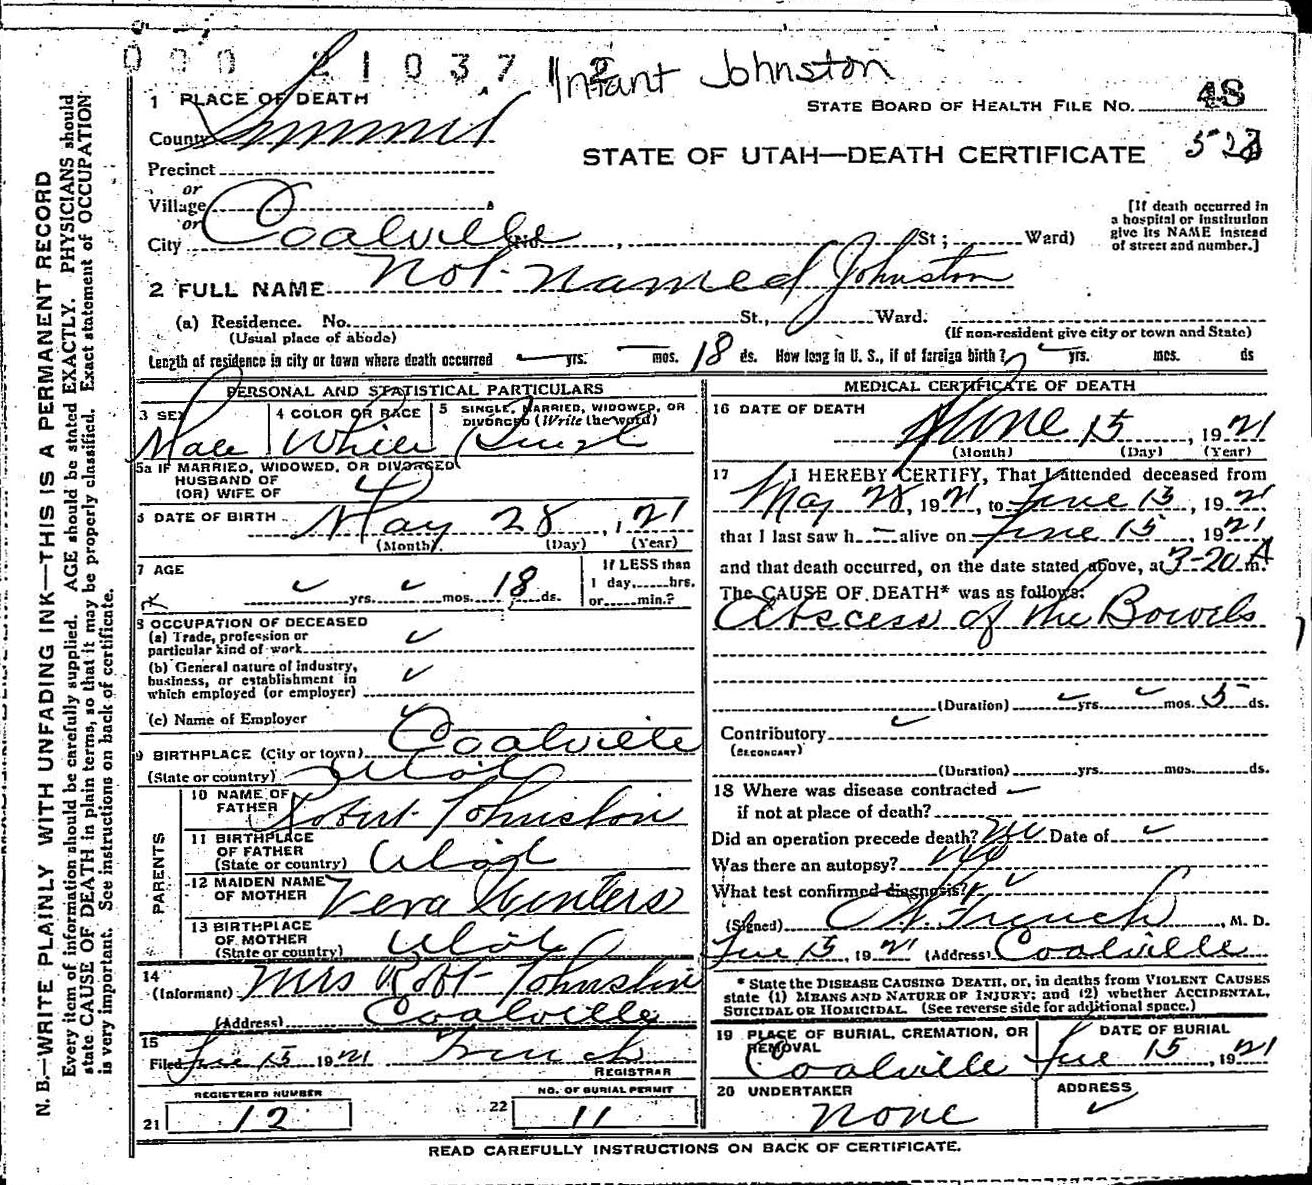 0 0 0 2 1 0 3 7 1 2
Infant Johnston
1 PLACE OF DEATH
STATE BOARD OF HEALTH FILE NO. 48
County Summit
STATE OF UTAH—DEATH CERTIFICATE 523
Precinct
or
Village
or
City Coalville No. , St ; Ward)
[If death occurred in
a hospital or institution
give its NAME instead
of street and number.]
2 FULL NAME Not Named Johnston
(a) Residence. No. St., Ward.
(Usual place of abode) (If non-resident give city or town and State)
Length of residence in city or town where death occurred yrs. mos. 18 ds. How long in U. S., if of foreign birth? yrs. mos. ds
PERSONAL AND STATISTICAL PARTICULARS
3 SEX 4 COLOR OR RACE 5 SINGLE, MARRIED, WIDOWED, OR
DIVORCED (Write the word)
Male White Single
5a IF MARRIED, WIDOWED, OR DIVORCED
HUSBAND OF
(OR) WIFE OF
6 DATE OF BIRTH May 28, 121
(Month) (Day) (Year)
7 AGE yrs. mos. 18 ds.
If LESS than
1 day, hrs.
or min.?
8 OCCUPATION OF DECEASED
(a) Trade, profession or
particular kind of work
(b) General nature of industry,
business, or establishment in
which employed (or employer)
(c) Name of Employer
9 BIRTHPLACE (City or town) Coalville
(State or country) Utah
PARENTS
10 NAME OF
FATHER Robert Johnston
11 BIRTHPLACE
OF FATHER
(State or country) Utah
12 MAIDEN NAME
OF MOTHER Vera Winters
13 BIRTHPLACE
OF MOTHER
(State or country) Utah
14
(Informant) Mrs Robt Johnston
(Address) Coalville
15
Filed June 15 1921 French
REGISTRAR
REGISTERED NUMBER
21 12
NO. OF BURIAL PERMIT
22 11
MEDICAL CERTIFICATE OF DEATH
16 DATE OF DEATH
June 15, 1921
(Month) (Day) (Year)
17 I HEREBY CERTIFY, That I attended deceased from
May 28, 1921, to June 15, 1921
that I last saw h alive on June 15, 1921
and that death occurred, on the date stated above, at 3-20 A m.
The CAUSE OF DEATH* was as follows:
Abscess of the Bowels
(Duration) yrs. mos. 5 ds.
Contributory
(SECONDARY)
(Duration) yrs. mos. ds.
18 Where was disease contracted
if not at place of death?
Did an operation precede death? No Date of
Was there an autopsy? No
What test confirmed diagnosis?
(Signed) French, M. D.
June 15, 1921 (Address) Coalville
* State the DISEASE CAUSING DEATH, or, in deaths from VIOLENT CAUSES
state (1) MEANS AND NATURE OF INJURY; and (2) whether ACCIDENTAL,
SUICIDAL OR HOMICIDAL. (See reverse side for additional space.)
19 PLACE OF BURIAL, CREMATION, OR
REMOVAL
Coalville
DATE OF BURIAL
June 15, 1921
20 UNDERTAKER
None
ADDRESS
READ CAREFULLY INSTRUCTIONS ON BACK OF CERTIFICATE.
N. B.—WRITE PLAINLY WITH UNFADING INK—THIS IS A PERMANENT RECORD
Every item of information should be carefully supplied. AGE should be stated EXACTLY. PHYSICIANS should
state CAUSE OF DEATH in plain terms, so that it may be properly classified. Exact statement of OCCUPATION
is very important. See instructions on back of certificate.